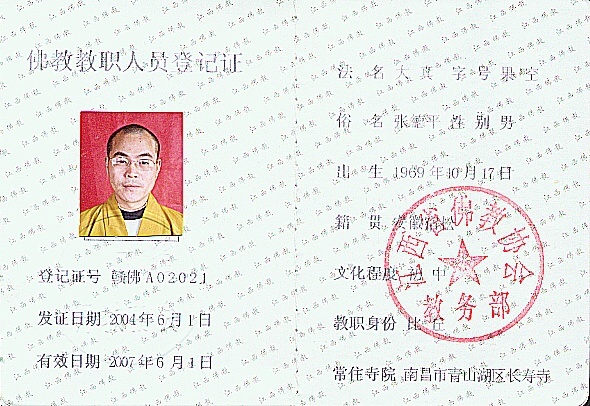 佛教教职人员登记证
登记证号 赣佛A02021
发证日期 2004年6月1日
有效日期 2007年6月1日
法 名 大真 字号 果空
俗 名 张 平 性 别 男
出 生 1969年10月17日
籍 贯 安徽宿松
文化程度 初 中
教职身份 比 丘
常住寺院 南昌市青山湖区长寿寺
江西省佛教协会
教务部
江西佛教